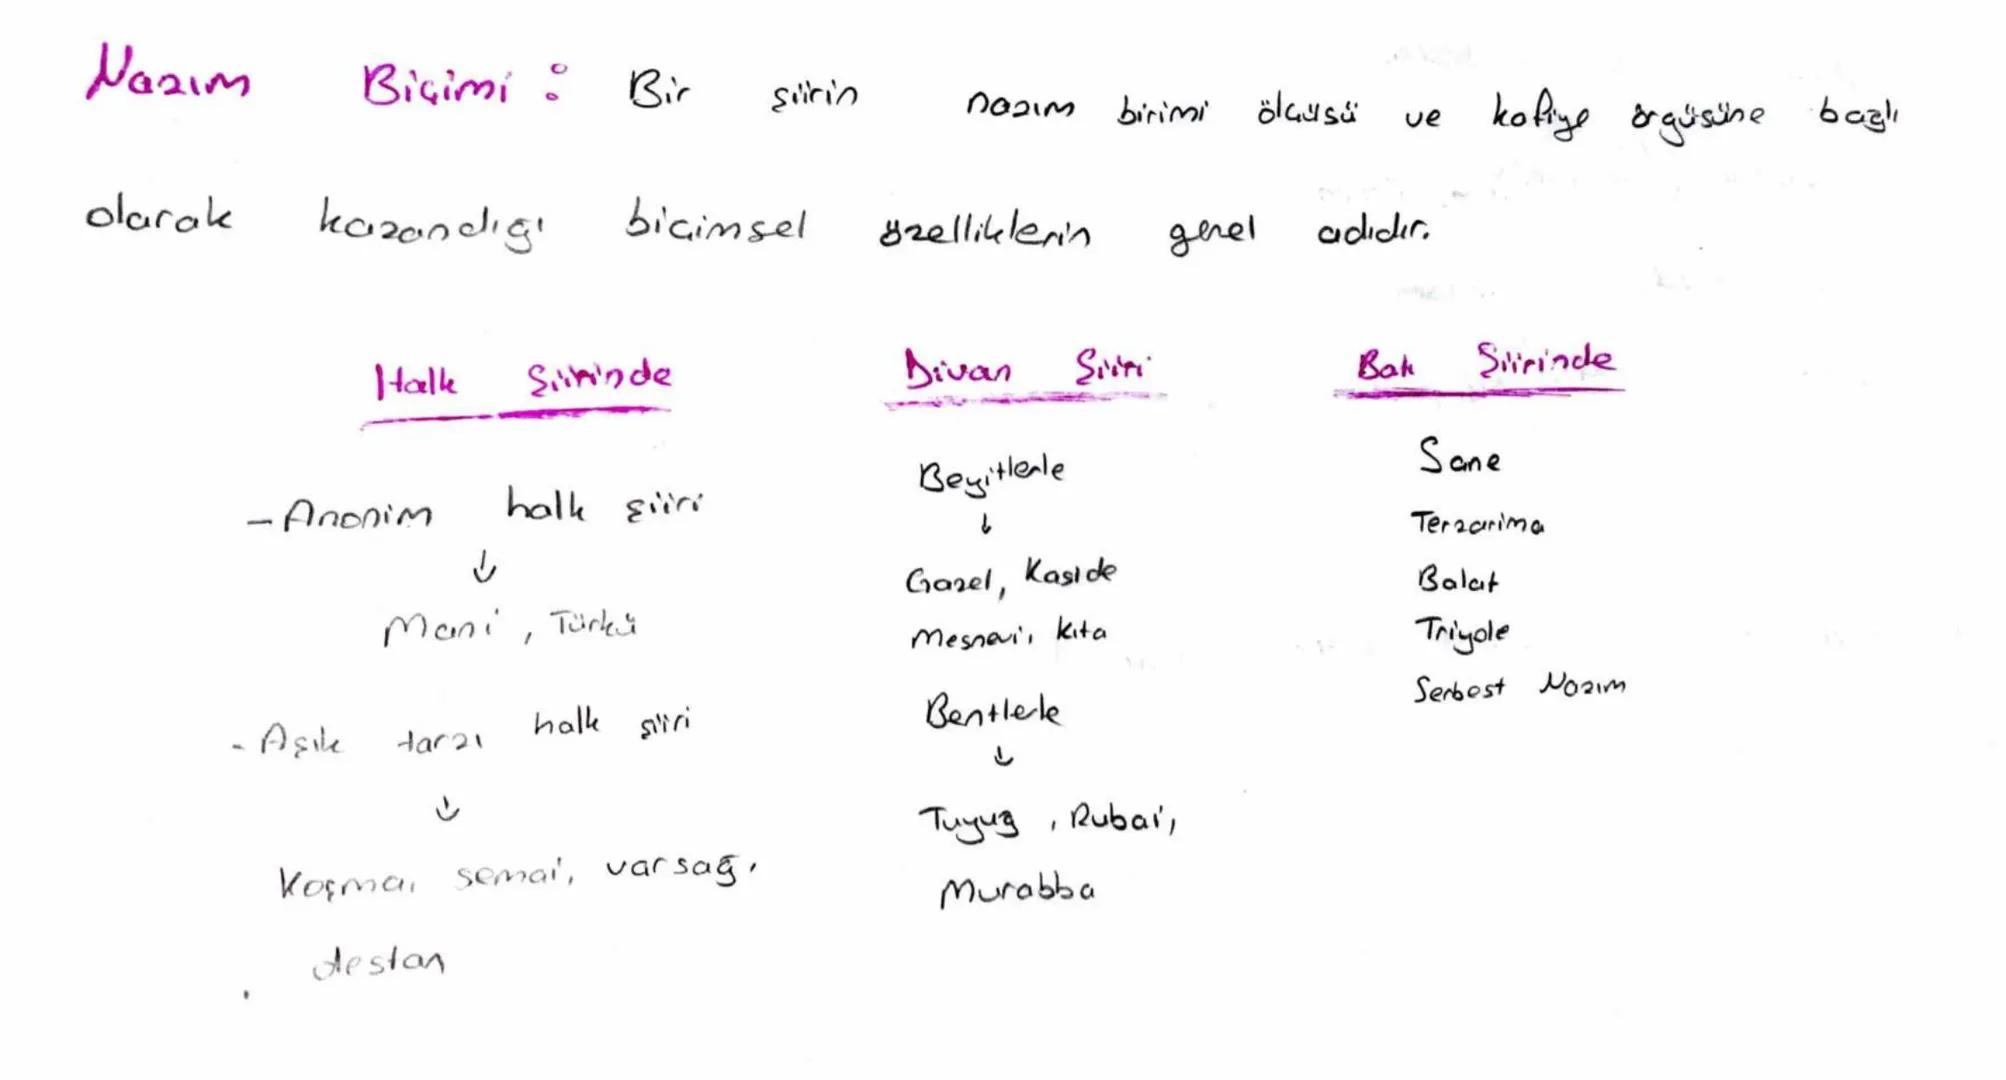 Nazım Biçimi : Bir şiirin nazım birimi ölçüsü ve kafiye örgüsüne bağlı
olarak kazandığı biçimsel özelliklerin genel adıdır.
Halk Şiirinde
- Anonim halk şiiri
↓
Mani, Türkü
- Aşık tarzı halk şiiri
↓
Koşma, semai, varsağı,
destan
Divan Şiiri
Beyitlerle
↓
Gazel, Kaside
Mesnevi, kıta
Bentlerle
↓
Tuyuğ, Rubai,
Murabba
Batı Şiirinde
Sone
Terzarima
Balat
Triyole
Serbest Nazım